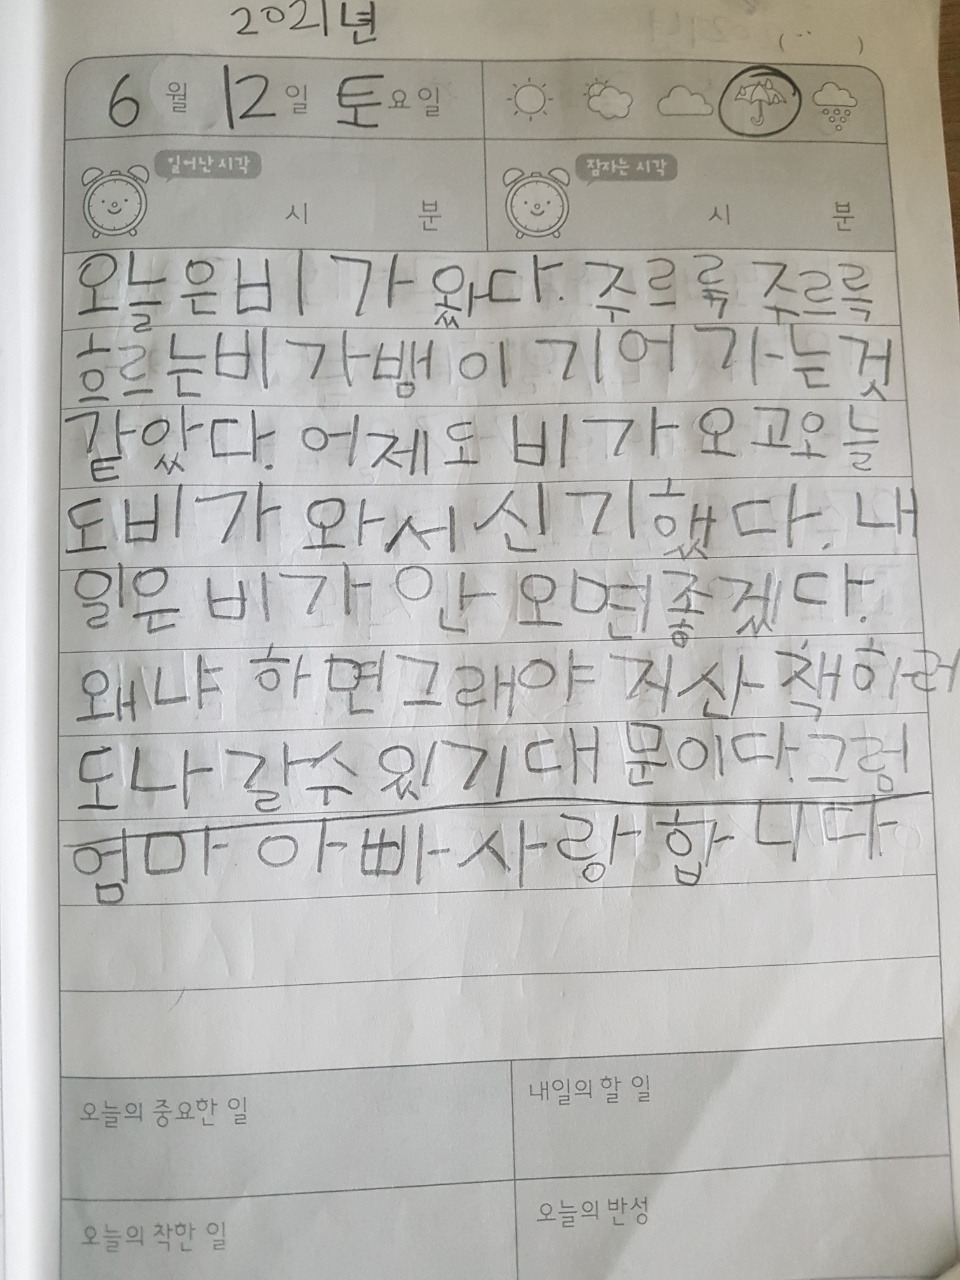 2021년
6월 12일 토요일
일어난 시각 잠자는 시각
시 분 시 분
오늘은 비가 왔다. 주르륵 주르륵
흐르는 비가 뱀이 기어 가는 것
같았다. 어제도 비가 오고 오늘
도 비가 와서 신기했다. 내
일은 비가 안 오면 좋겠다.
왜냐하면 그래야지 산책하러
도 나갈 수 있기 대문이다. 그럼
엄마 아빠 사랑합니다
오늘의 중요한 일 내일의 할 일
오늘의 착한 일 오늘의 반성